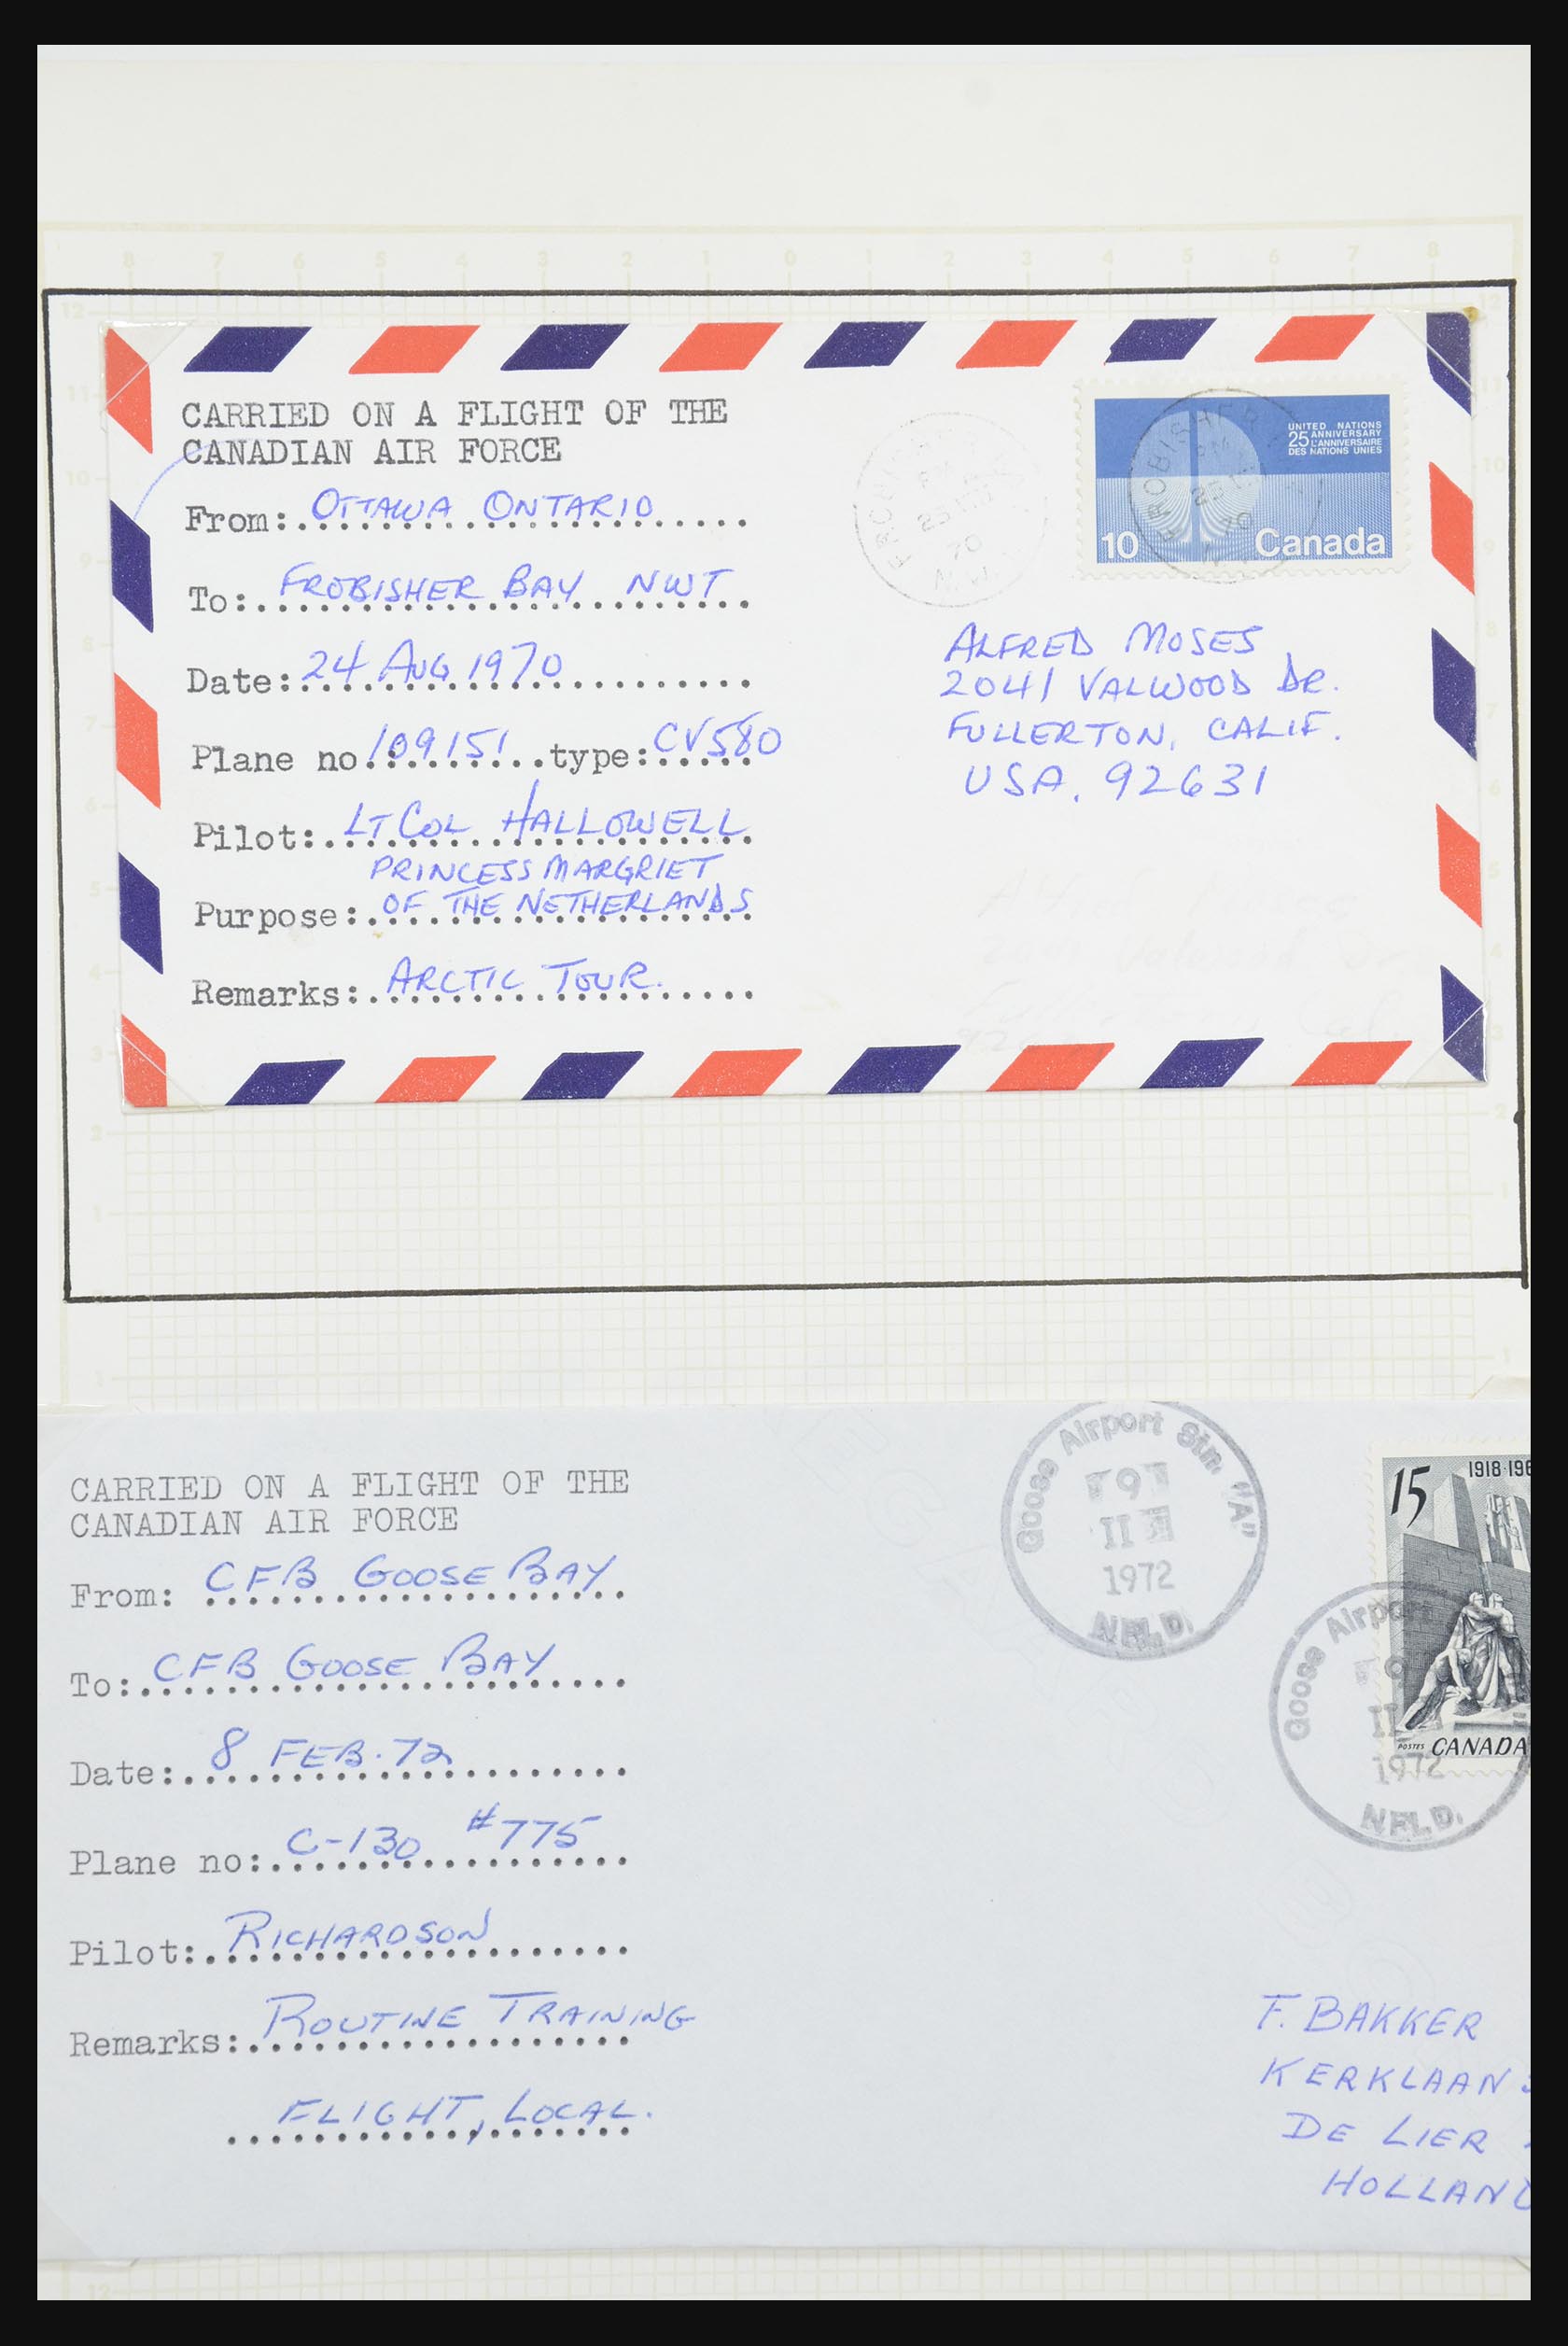 CARRIED ON A FLIGHT OF THE
CANADIAN AIR FORCE
From: OTTAWA ONTARIO
To: FROBISHER BAY NWT
Date: 24 AUG 1970
Plane no 109151 type: CV580
Pilot: LT COL HALLOWELL
PRINCESS MARGRIET
Purpose: OF THE NETHERLANDS
Remarks: ARCTIC TOUR.
70
UNITED NATIONS
25 ANNIVERSARY
L'ANNIVERSAIRE
DES NATIONS UNIES
FROBISHER
PM
70
10 Canada
ALFRED MOSES
2041 VALWOOD DR.
FULLERTON, CALIF.
USA. 92631
CARRIED ON A FLIGHT OF THE
CANADIAN AIR FORCE
From: CFB GOOSE BAY
To: CFB GOOSE BAY
Date: 8 FEB. 72
Plane no: C-130 #775
Pilot: RICHARDSON
Remarks: ROUTINE TRAINING
FLIGHT, LOCAL.
Goose Airport Stn. "A"
9
II
1972
NFLD.
15
1918-196
POSTES CANADA
Goose Airport
9
II
1972
NFLD.
F. BAKKER
KERKLAAN
DE LIER
HOLLAND